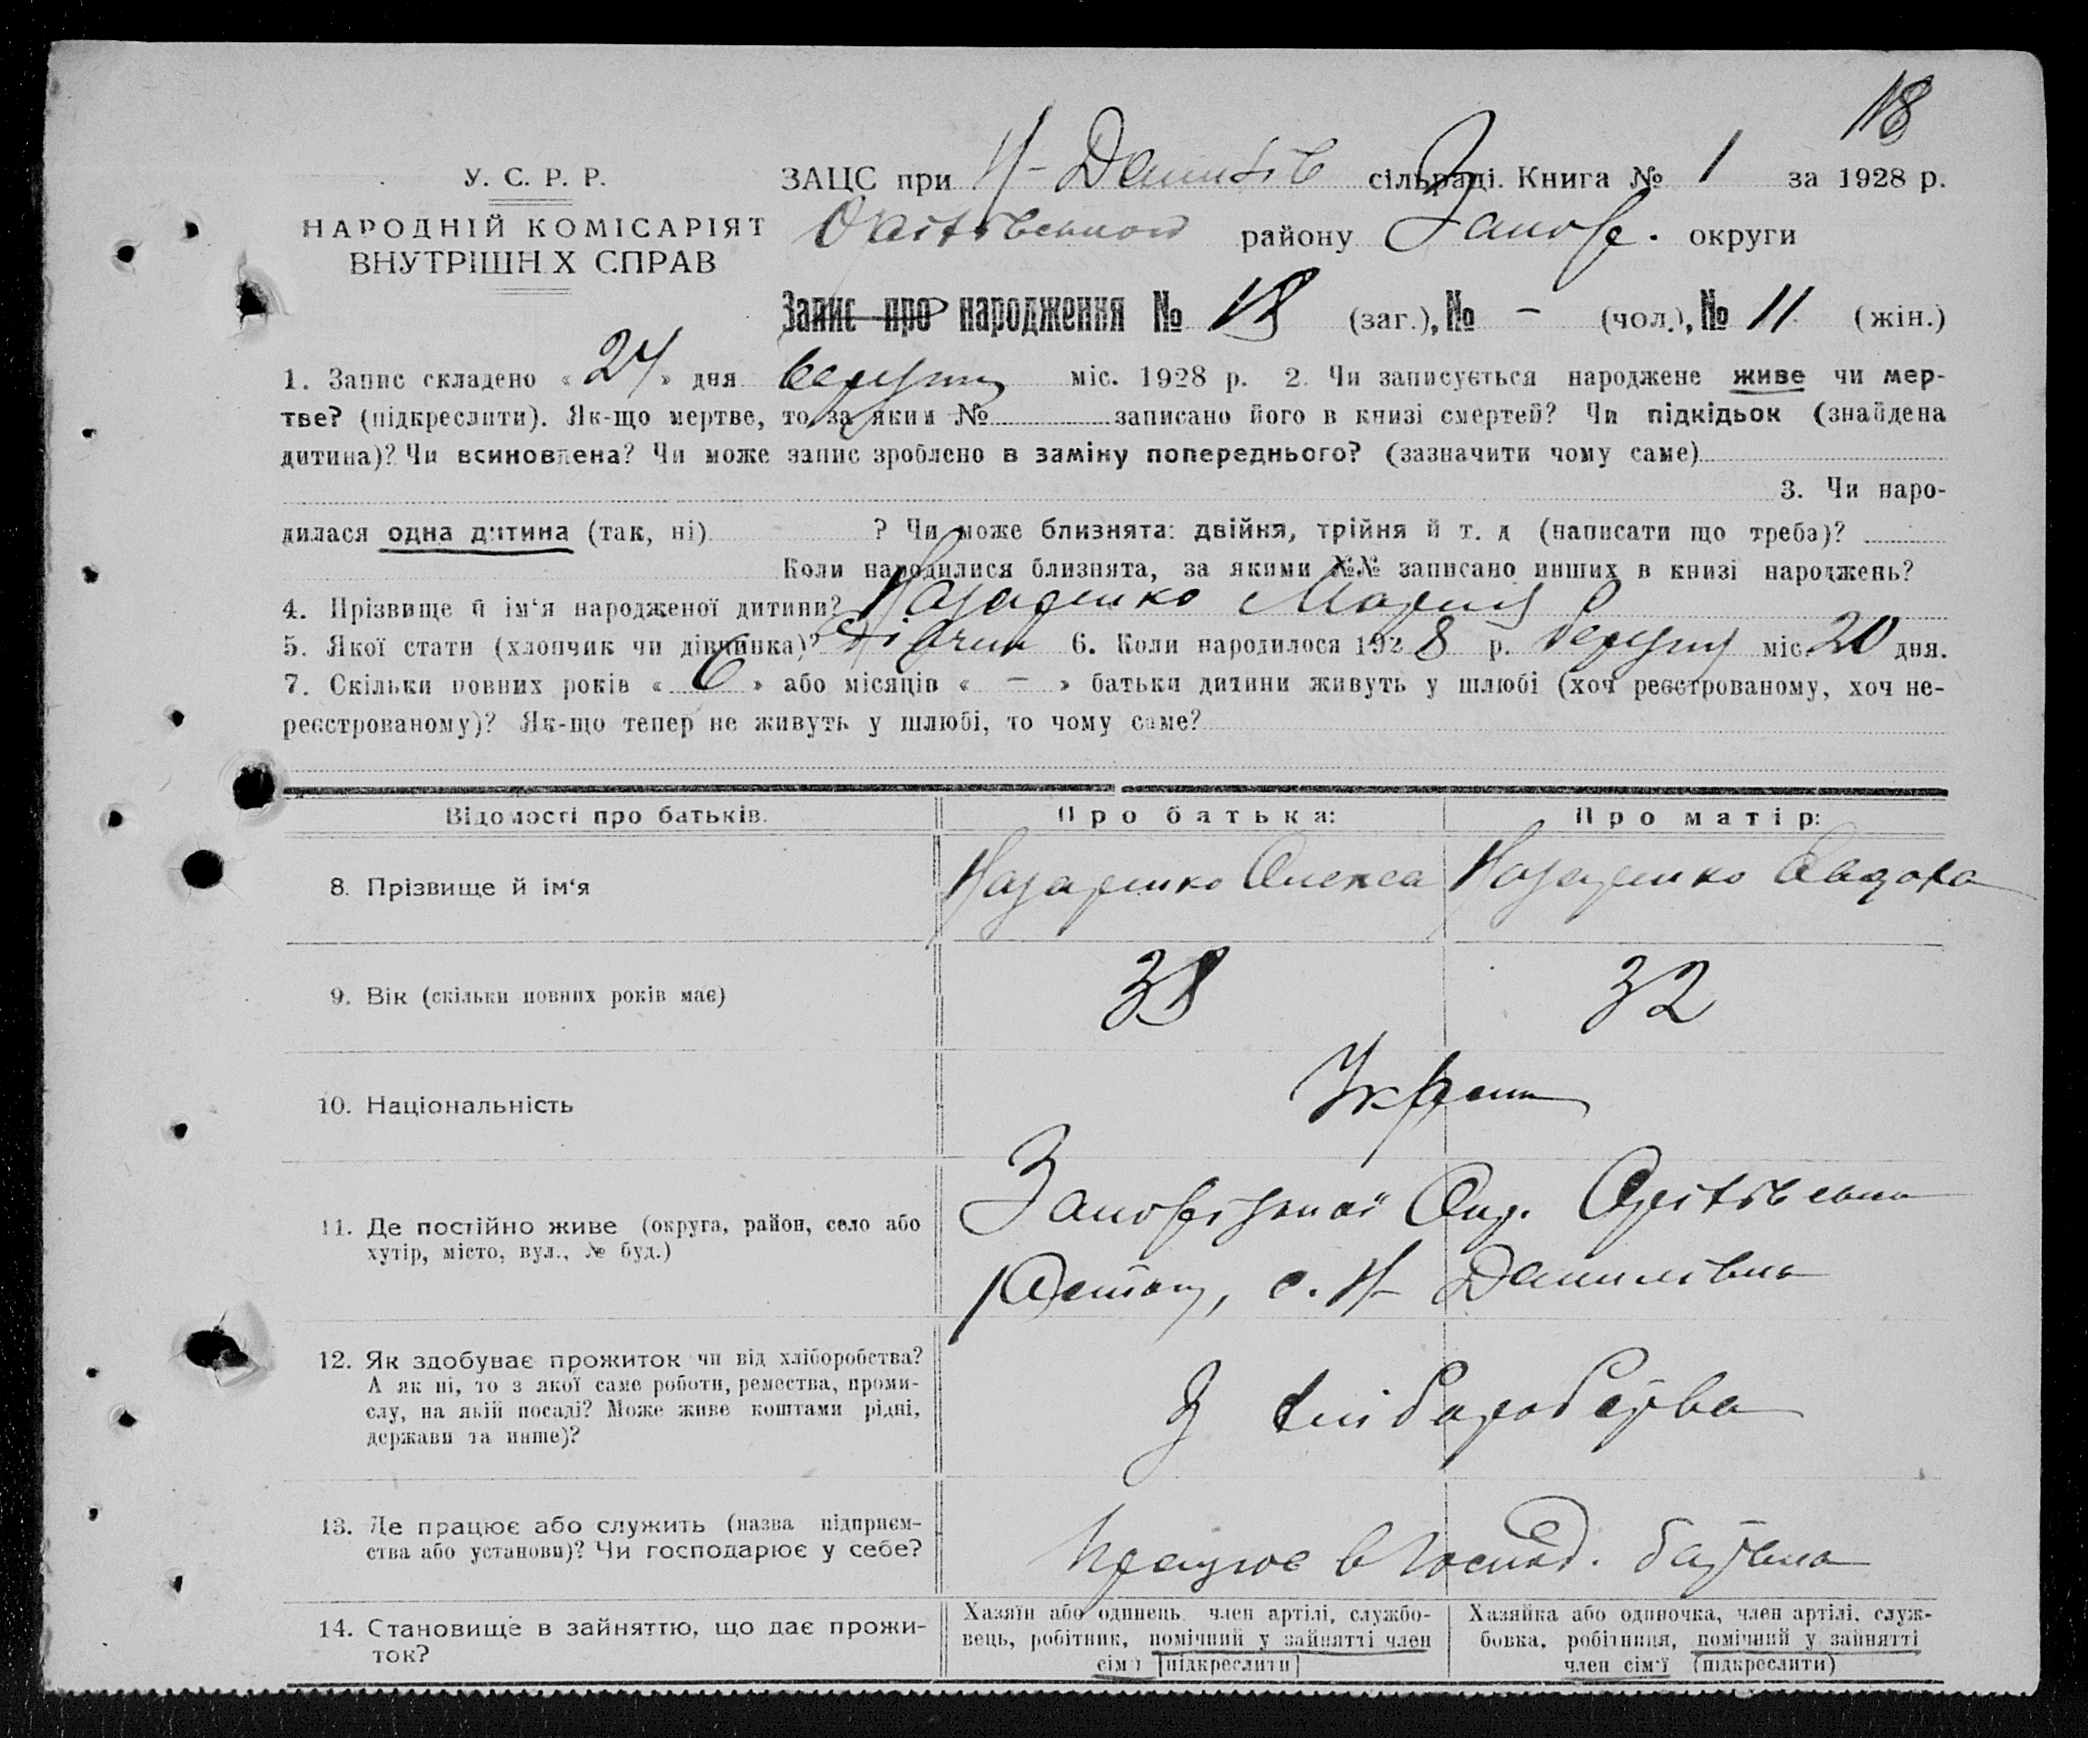 18
У. С. Р. Р.
НАРОДНІЙ КОМІСАРІЯТ
ВНУТРІШН Х СПРАВ
ЗАЦС при Н-Данилів сільраді. Книга № 1 за 1928 р.
району Запоріз. округи
Запис про народження № 18 (заг.), № - (чол.), № 11 (жін.)
1. Запис складено « 24 » дня березня міс. 1928 р. 2. Чи записується народжене живе чи мер-
тве? (підкреслити). Як-що мертве, то за яким № записано його в книзі смертей? Чи підкідьок (знайдена
дитина)? Чи всиновлена? Чи може запис зроблено в заміну попереднього? (зазначити чому саме)
3. Чи наро-
дилася одна дитина (так, ні) ? Чи може близнята: двійня, трійня й т. д (написати що треба)?
Коли народилися близнята, за якими №№ записано инших в книзі народжень?
4. Прізвище й ім‘я народженої дитини? Назаренко Мария
5. Якої стати (хлопчик чи дівчинка)? Дівчин 6. Коли народилося 1928 р. березня міс. 20 дня.
7. Скільки повних років « 6 » або місяців « – » батьки дитини живуть у шлюбі (хоч реєстрованому, хоч не-
реєстрованому)? Як-що тепер не живуть у шлюбі, то чому саме?
Відомості про батьків. Про батька: Про матір:
8. Прізвище й ім‘я Назаренко Олекса Назаренко Евдока
9. Вік (скільки повних років має) 38 32
10. Національність Україн
11. Де постійно живе (округа, район, село або
хутір, місто, вул., № буд.)
Запорізької Окр. Оріхівськ
Району, с. Н-Данилівка
12. Як здобуває прожиток чи від хліборобства?
А як ні, то з якої саме роботи, ремества, проми-
слу, на якій посаді? Може живе коштами рідні,
держави та инше)?
З хліборобства
13. Де працює або служить (назва підприєм-
ства або установи)? Чи господарює у себе?
Працює в господ. батька
14. Становище в зайняттю, що дає прожи-
ток?
Хазяїн або одинець, член артілі, службо-
вець, робітник, помічний у зайнятті член
сім‘ї [підкреслити]
Хазяйка або одиночка, член артілі, служ-
бовка, робітниця, помічний у зайнятті
член сім‘ї (підкреслити)